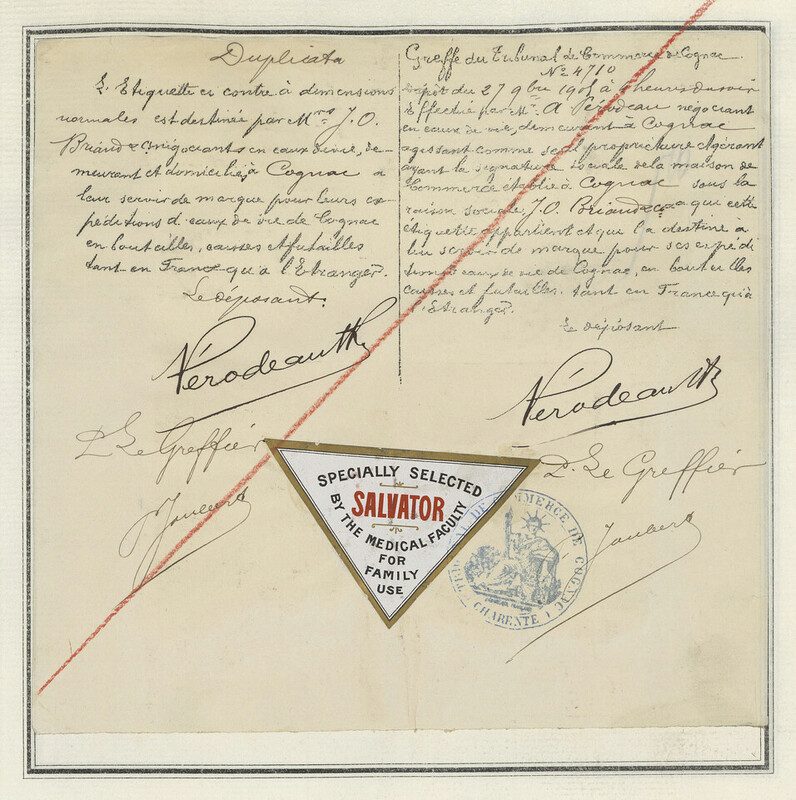 Duplicata
L'Etiquette ci contre à dimensions
normales est destinée par Mrs J. O.
Briand & Co négociants en eaux de vie, de-
meurant et domiciliés à Cognac à
leur servir de marque pour leurs ex-
péditions d'eaux de vie de Cognac
en bouteilles, caisses et futailles
tant en France qu'à l'Etranger.
Le déposant.
Pérodeau
P. Le Greffier
Joubert
Greffe du Tribunal de Commerce de Cognac.
No 4710
Dépôt du 27 9bre à heures du soir
Effectué par Mr. A Pérodeau négociant
en eaux de vie, demeurant à Cognac
agissant comme seul propriétaire et gérant
ayant la signature sociale de la maison de
Commerce établie à Cognac sous la
raison sociale J. O. Briand & Co a qui cette
étiquette appartient et qui l'a destiné à
lui servir de marque pour ses expédi
tions d'eaux de vie de Cognac, en bouteilles
caisses et futailles. tant en France qu'à
l'Etranger.
Le déposant
Pérodeau
P. Le Greffier
Joubert
SPECIALLY SELECTED
SALVATOR
BY THE MEDICAL FACULTY
FOR
FAMILY
USE
TRIBUNAL DE COMMERCE DE COGNAC
(CHARENTE)